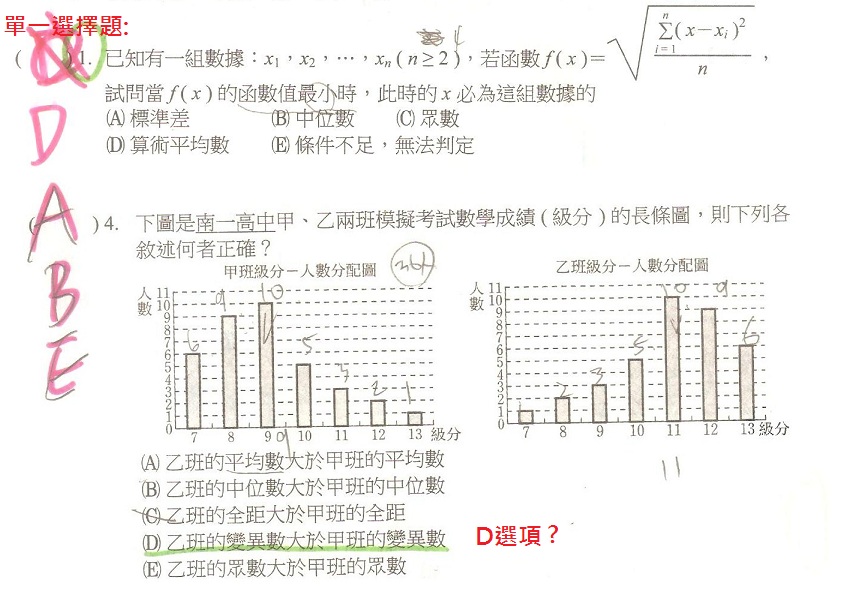 單一選擇題:
( )1. 已知有一組數據：x₁，x₂，⋯，xₙ ( n ≥ 2 )，若函數 f ( x )＝√(Σᵢ₌₁ⁿ( x－xᵢ )² / n)，
4
試問當 f ( x ) 的函數值最小時，此時的 x 必為這組數據的
(A) 標準差 (B) 中位數 (C) 眾數
(D) 算術平均數 (E) 條件不足，無法判定
D
A
B
E
( )4. 下圖是南一高中甲、乙兩班模擬考試數學成績 ( 級分 ) 的長條圖，則下列各
敘述何者正確？
36人
甲班級分－人數分配圖
人數
11
10
9
8
7
6
5
4
3
2
1
0
6 9 10 5 3 2 1
7 8 9 10 11 12 13 級分
9
乙班級分－人數分配圖
人數
11
10
9
8
7
6
5
4
3
2
1
0
2 3 5 10 9 6
7 8 9 10 11 12 13 級分
11
(A) 乙班的平均數大於甲班的平均數
(B) 乙班的中位數大於甲班的中位數
(C) 乙班的全距大於甲班的全距
(D) 乙班的變異數大於甲班的變異數 D選項？
(E) 乙班的眾數大於甲班的眾數